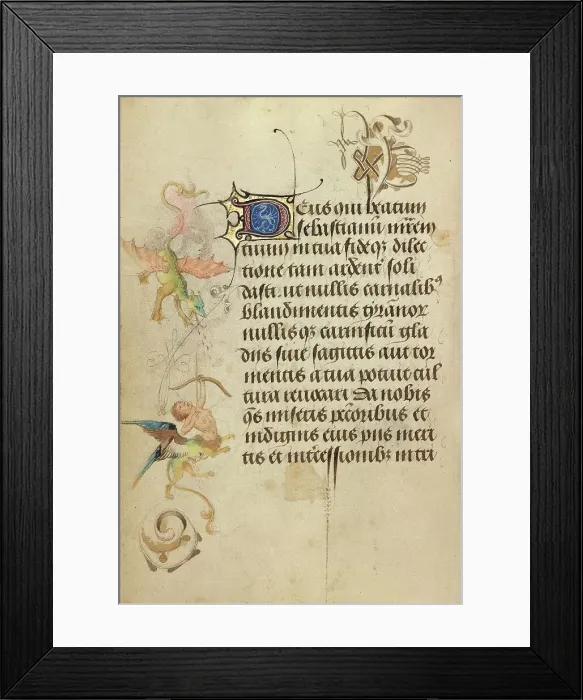 Deus qui beatum
sebastianū mr̄em
tuum in tua fide qʒ dilec
tione tam ardent̄ soli
dasti. ut nullis carnalibꝰ
blandimentis tyrānor
nullis qʒ carnificū gla
diis siue sagittis aut tor
mentis a tua potuit cul
tura reuocari Da nobis
q̄s miseris pctōribus et
indignis eius piis meri
tis et intercessionibꝫ in tri